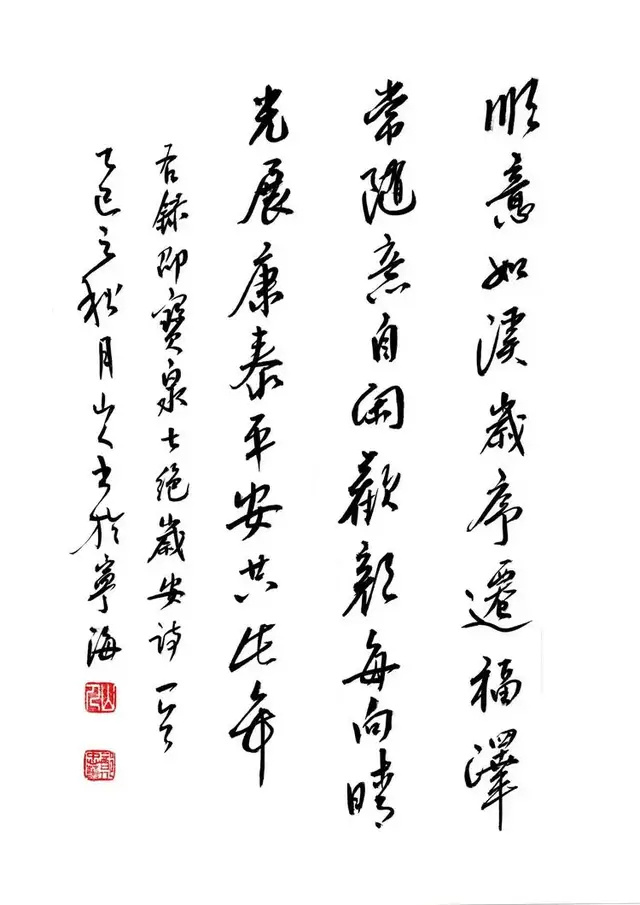 順意如溪歲序遷福澤
常隨意自閑歡顏每向晴
光展康泰平安共此年
右錄邵寶泉七絕歲安詩一首
乙巳之秋月山人書於寧海